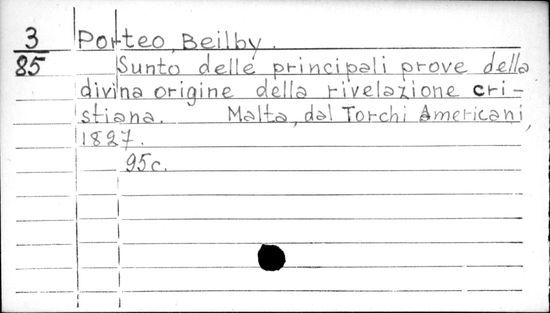 3 Porteo, Beilby.
85 Sunto delle principali prove della
divina origine della rivelazione cri-
stiana. Malta, dal Torchi Americani,
1827.
95c.